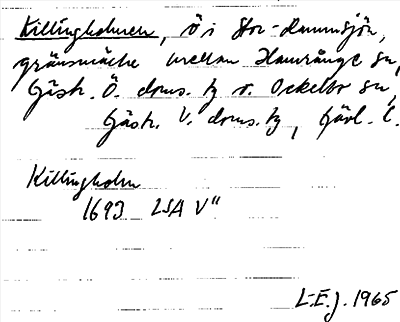 Killingholmen, ö i Stor-Hamnsjön,
gränsmärke mellan Hamrånge sn,
Gästr. Ö. doms. tg o. Ockelbo sn,
Gästr. V. doms. tg, Gävl. l.
Killingholm
1693 LSA V"
L.E.J. 1965